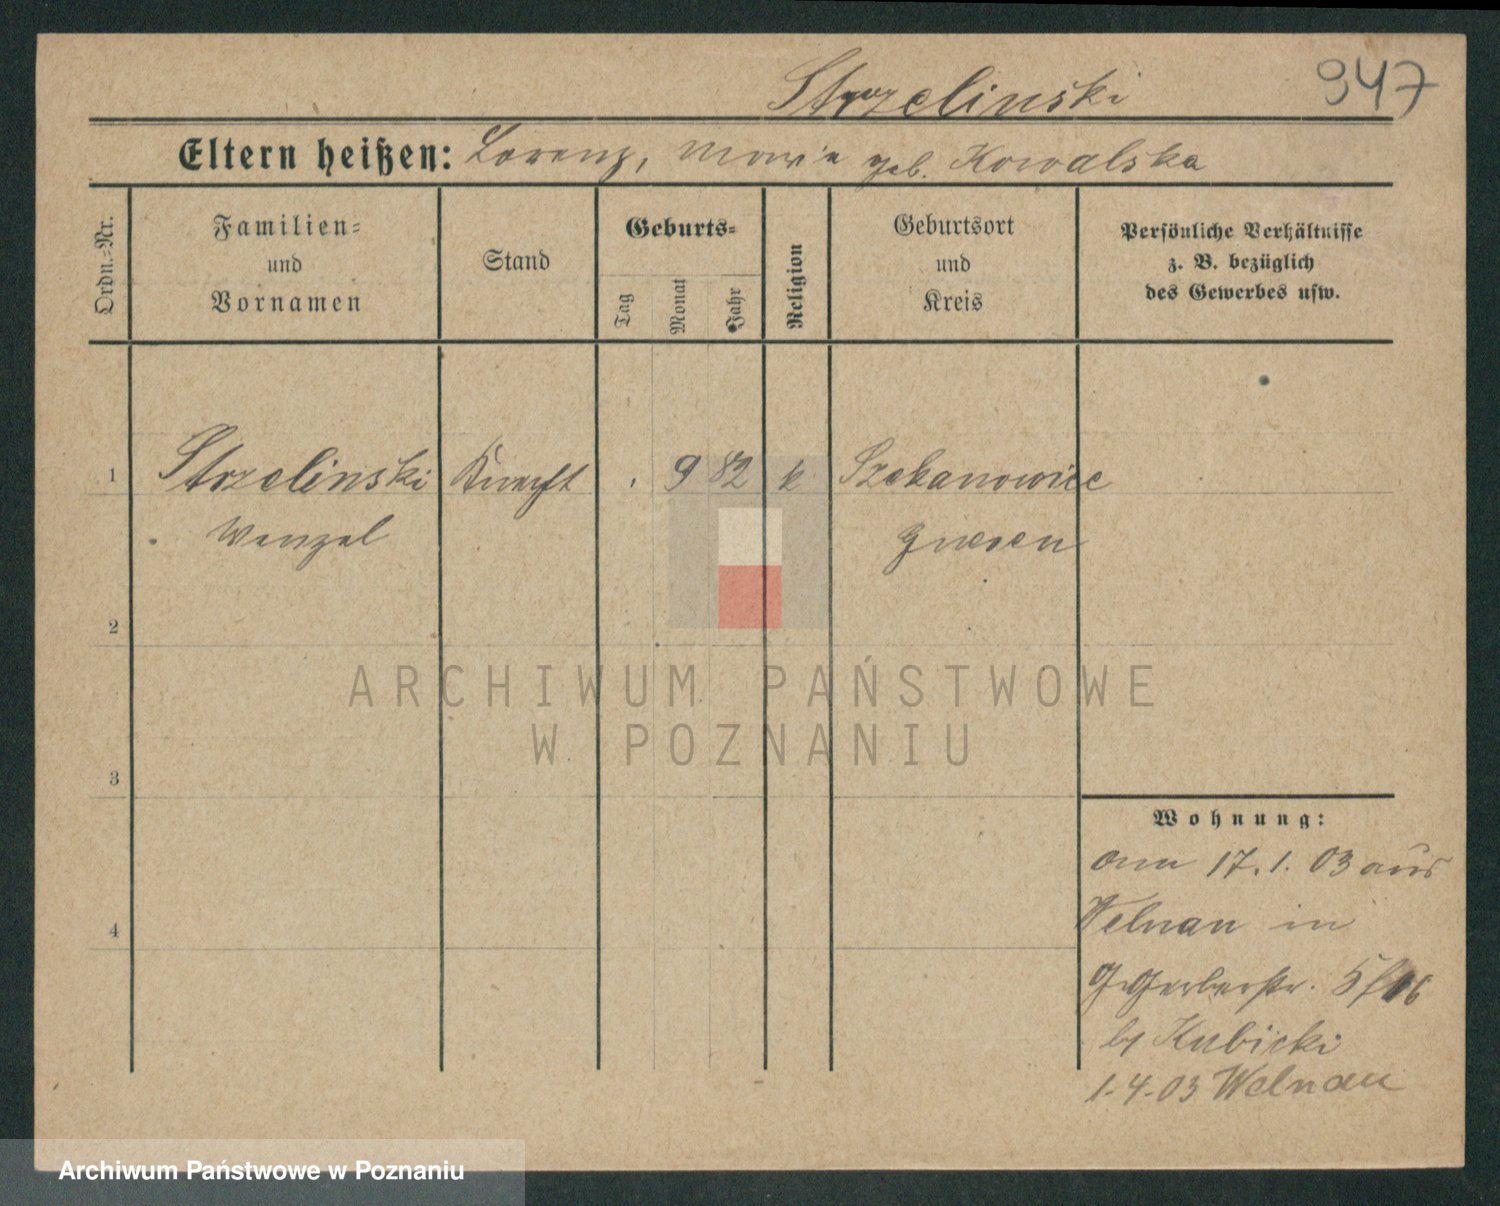 Strzelinski
947
Eltern heißen: Lorenz, Marie geb. Kowalska
Ordn.-Nr.
Familien-
und
Vornamen
Stand
Geburts-
Tag
Monat
Jahr
Religion
Geburtsort
und
Kreis
Persönliche Verhältnisse
z. B. bezüglich
des Gewerbes usw.
1 Strzelinski Knecht . 9 82 k Szekanowice
Wenzel Gnesen
2
ARCHIWUM PAŃSTWOWE
W POZNANIU
3
Wohnung:
am 17.1.03 aus
Welnau in
4
Gerberstr. 5/
by Kubicki
1.4.03 Welnau
Archiwum Państwowe w Poznaniu